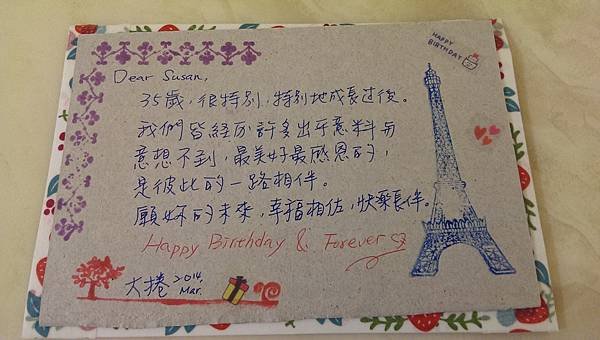 HAPPY
BIRTHDAY
Dear Susan,
35歲，很特別，特別地成長过後。
我們皆經历許多出乎意料与
意想不到，最美好最感恩的，
是彼此的一路相伴。
願妳的未來，幸福相佐，快樂長伴。
Happy Birthday & Forever
大捲 2014.
Mar.